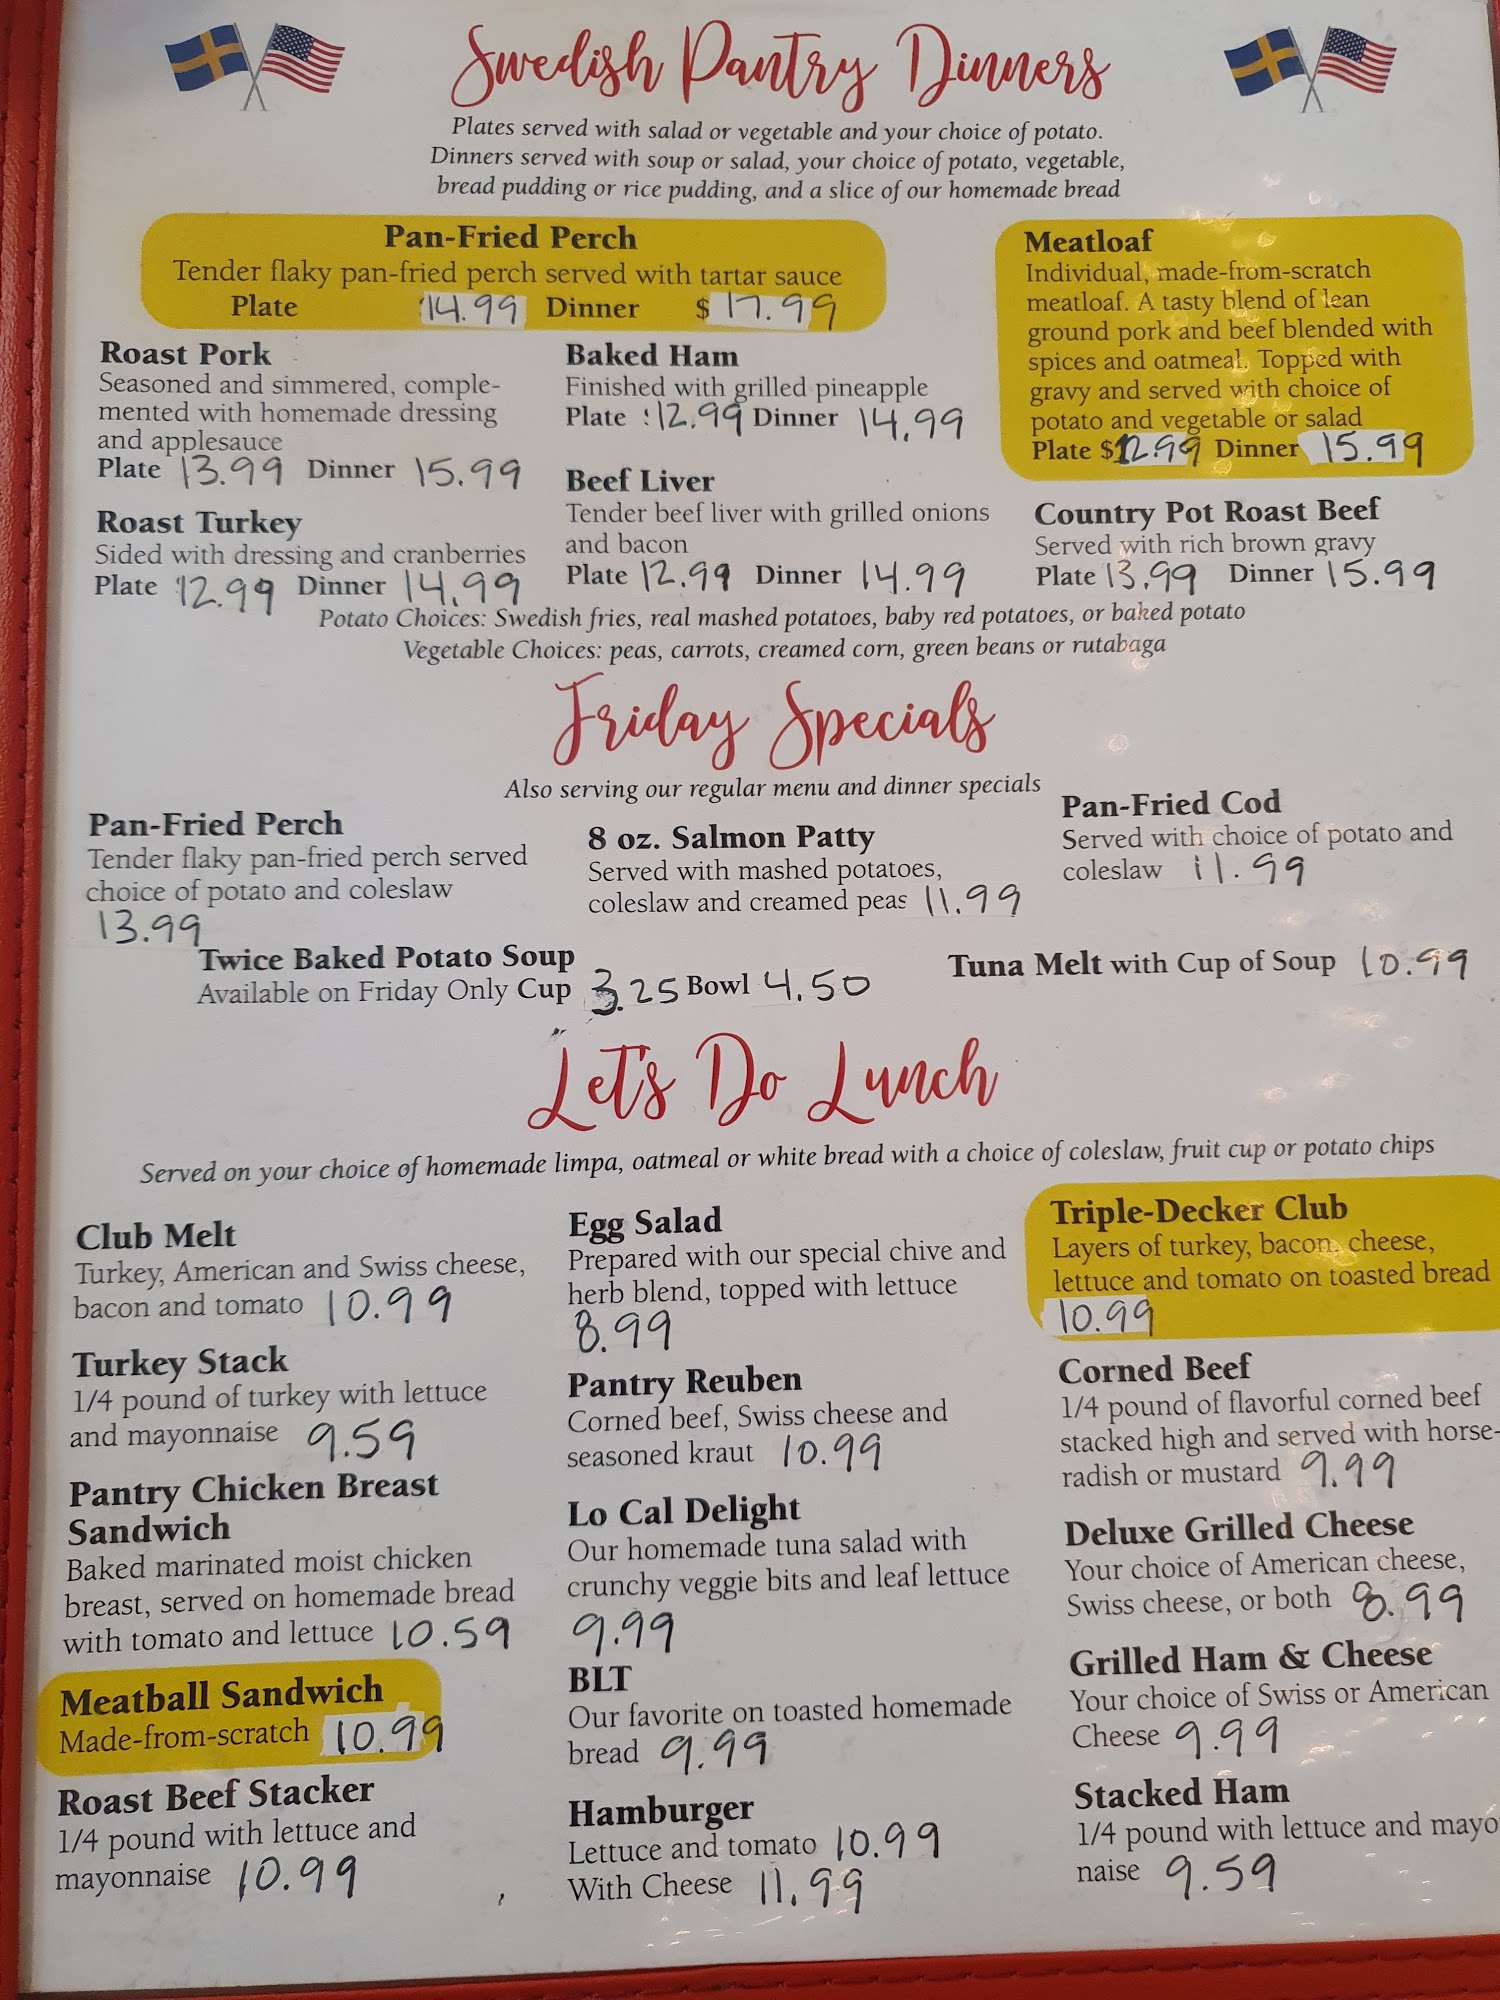 Swedish Pantry Dinners
Plates served with salad or vegetable and your choice of potato.
Dinners served with soup or salad, your choice of potato, vegetable,
bread pudding or rice pudding, and a slice of our homemade bread
Pan-Fried Perch
Tender flaky pan-fried perch served with tartar sauce
Plate 14.99 Dinner $ 17.99
Roast Pork
Seasoned and simmered, comple-
mented with homemade dressing
and applesauce
Plate 13.99 Dinner 15.99
Roast Turkey
Sided with dressing and cranberries
Plate 12.99 Dinner 14.99
Baked Ham
Finished with grilled pineapple
Plate 12.99 Dinner 14.99
Beef Liver
Tender beef liver with grilled onions
and bacon
Plate 12.99 Dinner 14.99
Meatloaf
Individual, made-from-scratch
meatloaf. A tasty blend of lean
ground pork and beef blended with
spices and oatmeal. Topped with
gravy and served with choice of
potato and vegetable or salad
Plate $12.99 Dinner 15.99
Country Pot Roast Beef
Served with rich brown gravy
Plate 13.99 Dinner 15.99
Potato Choices: Swedish fries, real mashed potatoes, baby red potatoes, or baked potato
Vegetable Choices: peas, carrots, creamed corn, green beans or rutabaga
Friday Specials
Also serving our regular menu and dinner specials
Pan-Fried Perch
Tender flaky pan-fried perch served
choice of potato and coleslaw
13.99
8 oz. Salmon Patty
Served with mashed potatoes,
coleslaw and creamed peas 11.99
Pan-Fried Cod
Served with choice of potato and
coleslaw 11.99
Twice Baked Potato Soup
Available on Friday Only Cup 3.25 Bowl 4.50
Tuna Melt with Cup of Soup 10.99
Let's Do Lunch
Served on your choice of homemade limpa, oatmeal or white bread with a choice of coleslaw, fruit cup or potato chips
Club Melt
Turkey, American and Swiss cheese,
bacon and tomato 10.99
Turkey Stack
1/4 pound of turkey with lettuce
and mayonnaise 9.59
Pantry Chicken Breast
Sandwich
Baked marinated moist chicken
breast, served on homemade bread
with tomato and lettuce 10.59
Meatball Sandwich
Made-from-scratch 10.99
Roast Beef Stacker
1/4 pound with lettuce and
mayonnaise 10.99
Egg Salad
Prepared with our special chive and
herb blend, topped with lettuce
8.99
Pantry Reuben
Corned beef, Swiss cheese and
seasoned kraut 10.99
Lo Cal Delight
Our homemade tuna salad with
crunchy veggie bits and leaf lettuce
9.99
BLT
Our favorite on toasted homemade
bread 9.99
Hamburger
Lettuce and tomato 10.99
With Cheese 11.99
Triple-Decker Club
Layers of turkey, bacon, cheese,
lettuce and tomato on toasted bread
10.99
Corned Beef
1/4 pound of flavorful corned beef
stacked high and served with horse-
radish or mustard 9.99
Deluxe Grilled Cheese
Your choice of American cheese,
Swiss cheese, or both 8.99
Grilled Ham & Cheese
Your choice of Swiss or American
Cheese 9.99
Stacked Ham
1/4 pound with lettuce and mayo
naise 9.59